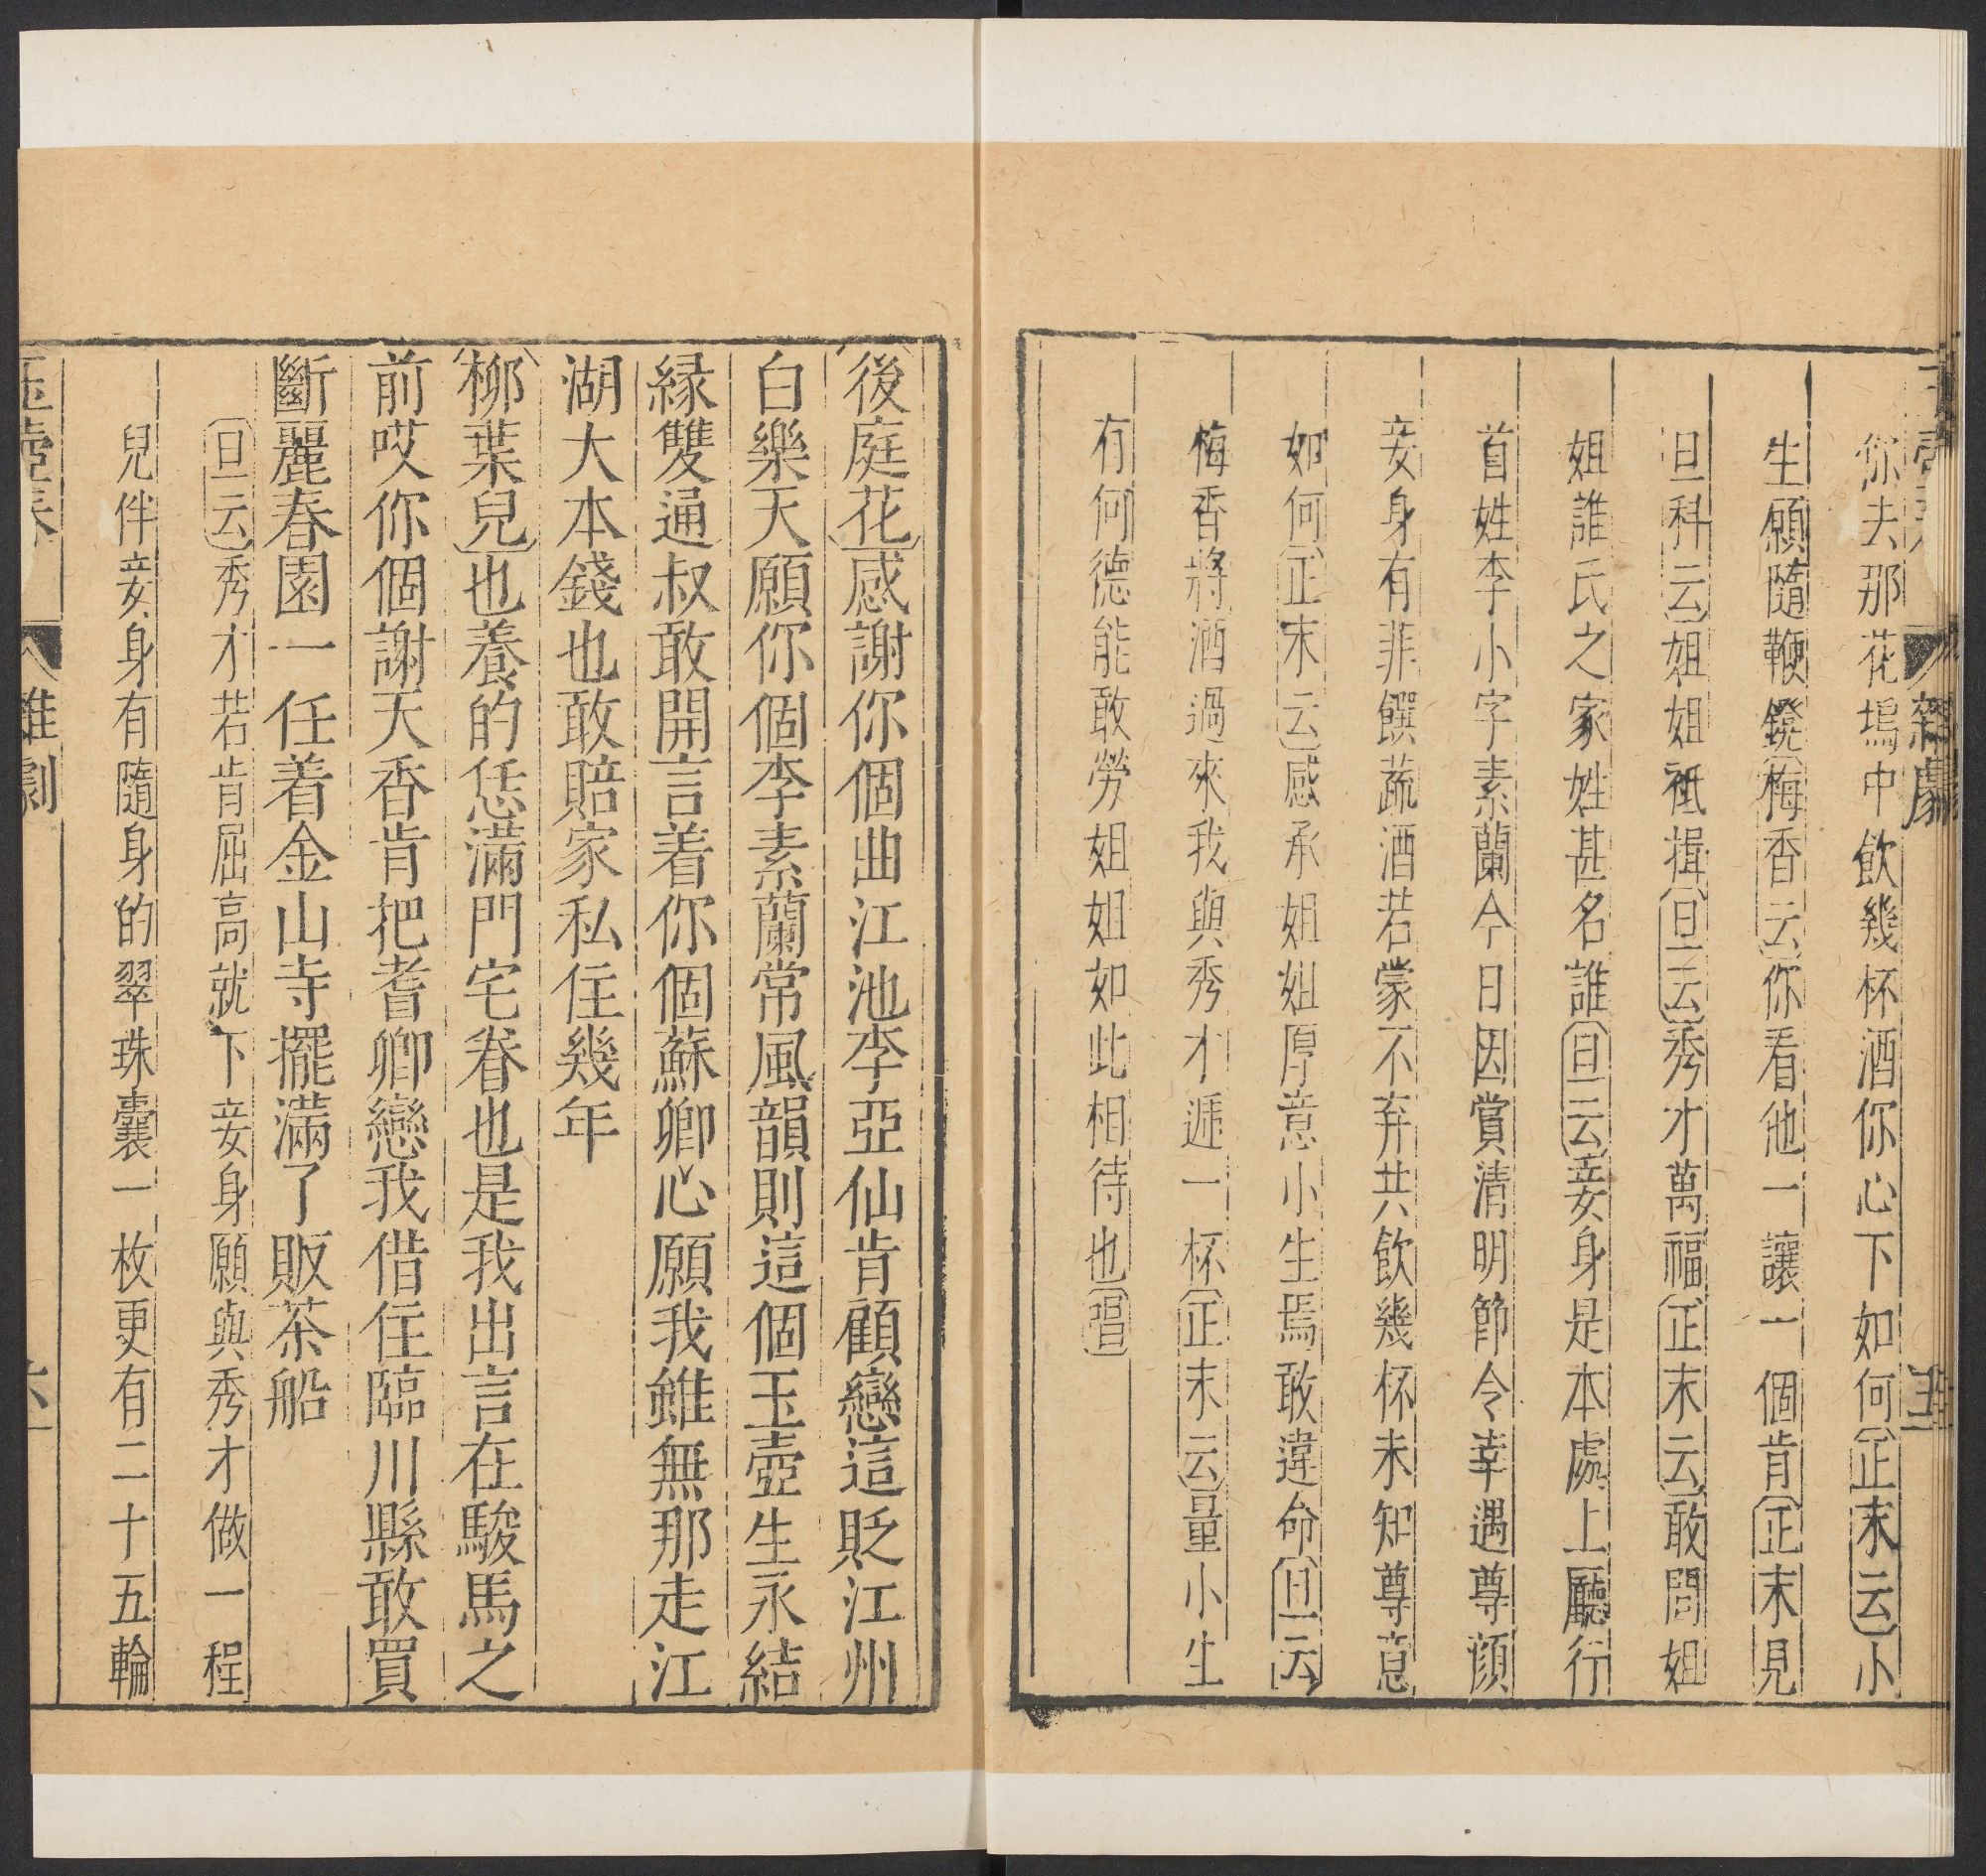 你去那花塢中飲幾杯酒你心下如何正末云小
生願隨鞭鐙梅香云你看他一讓一個肯正末見
旦科云姐姐祗揖旦云秀才萬福正末云敢問姐
姐誰氏之家姓甚名誰旦云妾身是本處上廳行
首姓李小字素蘭今日因賞清明節令幸遇尊顔
妾身有菲饌蔬酒若蒙不弃共飲幾杯未知尊意
如何正末云感承姐姐厚意小生焉敢違命旦云
梅香將酒過來我與秀才遞一杯正末云量小生
有何德能敢勞姐姐如此相待也唱
後庭花感謝你個曲江池李亞仙肯顧戀這貶江州
白樂天願你個李素蘭常風韻則這個玉壺生永結
緣雙通叔敢開言着你個蘇卿心願我雖無那走江
湖大本錢也敢賠家私住幾年
柳葉兒也養的恁滿門宅眷也是我出言在駿馬之
前哎你個謝天香肯把耆卿戀我借住臨川縣敢買
斷麗春園一任着金山寺擺滿了販茶船
旦云秀才若肯屈高就下妾身願與秀才做一程
兒伴妾身有隨身的翠珠囊一枚更有二十五輪
玉壺春 雜劇 六